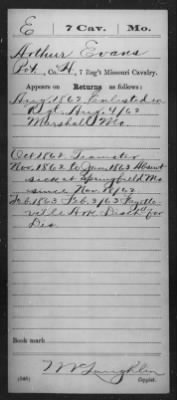 E | 7 Cav. | Mo.
Arthur Evans
Pvt., Co. H, 7 Reg't Missouri Cavalry.
Appears on Returns as follows:
Aug. 1862 Enlisted in
Regt. Aug. 4/62
Marshall Mo.
Oct 1862 Teamster
Nov. 1862 to Jan. 1863 Absent
sick at Springfield Mo
since Nov. 18/62
Feb. 1863 Feb. 3/63 Fayette-
ville Ark Disch'd for
Dis.
Book mark:
McLaughlin
(546) Copyist.